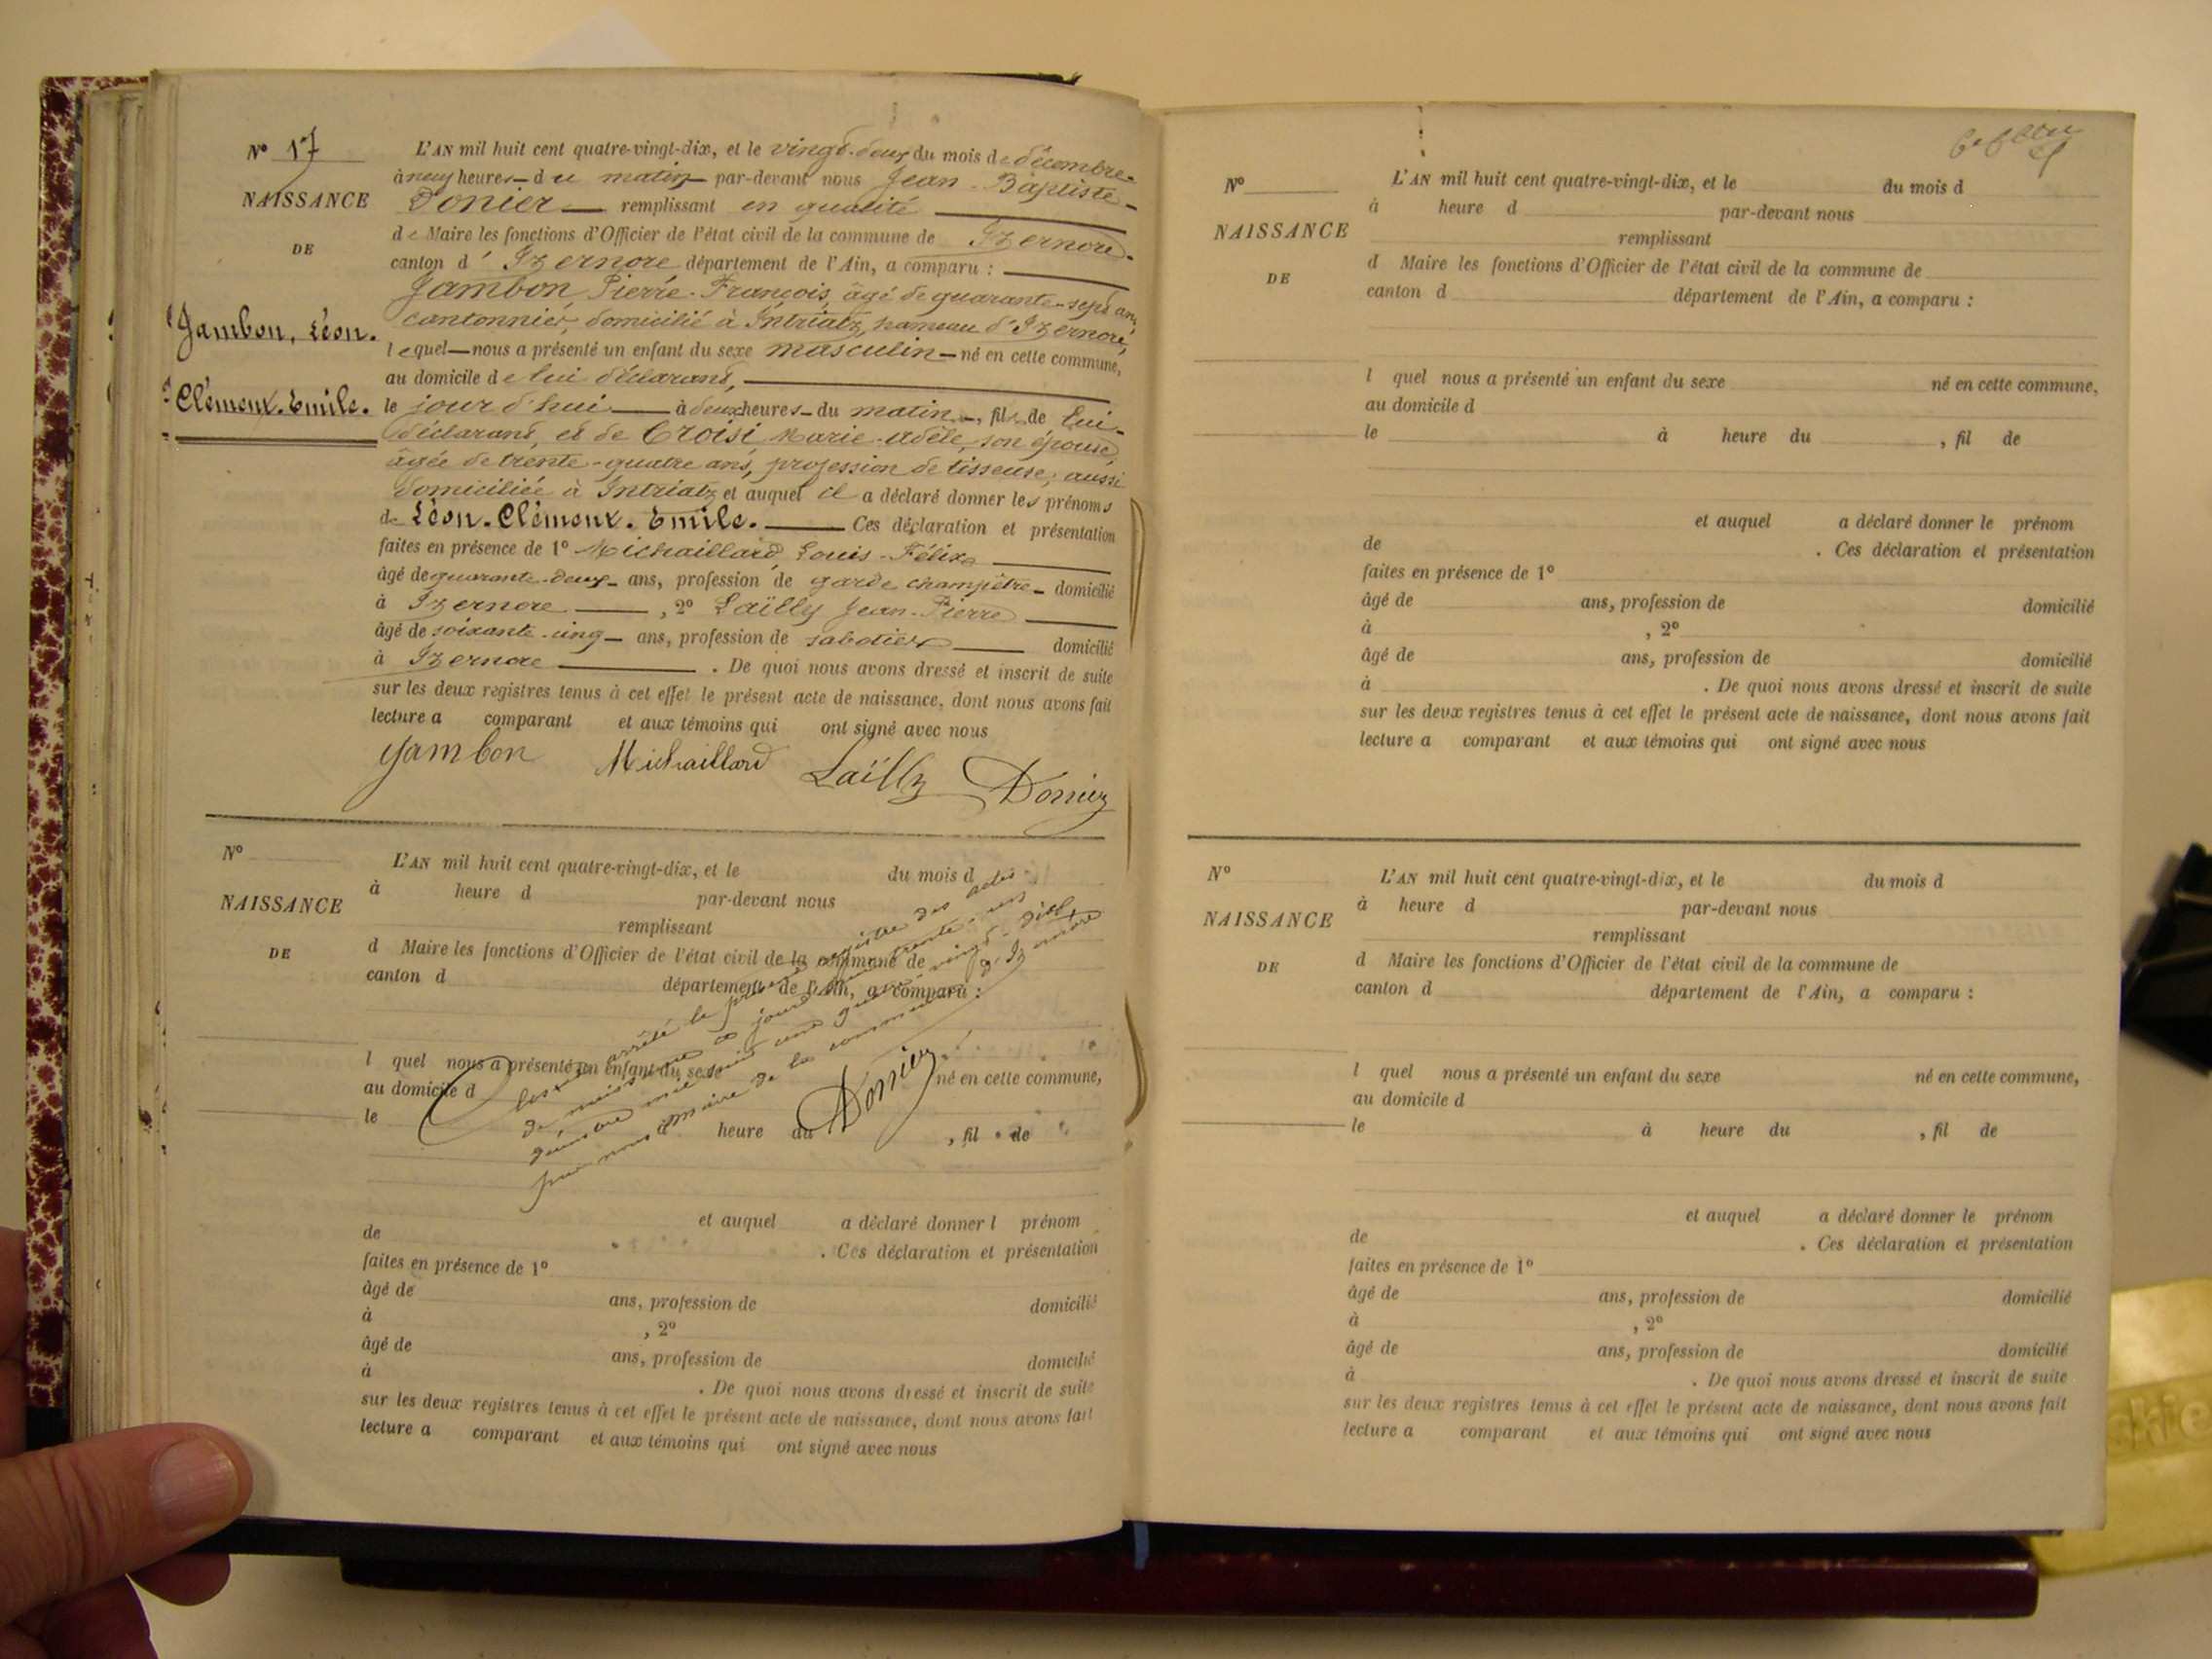 N° 17
NAISSANCE
DE
Jambon, Léon.
Clément. Emile.
L'AN mil huit cent quatre-vingt-dix, et le vingt-deux du mois de décembre
à neuf heures du matin par-devant nous Jean-Baptiste
Donier remplissant en qualité
de Maire les fonctions d'Officier de l'état civil de la commune de Izernore
canton d'Izernore département de l'Ain, a comparu :
Jambon Pierre-François, âgé de quarante-sept ans,
cantonnier, domicilié à Intriatz, hameau d'Izernore,
lequel nous a présenté un enfant du sexe masculin né en cette commune,
au domicile de lui déclarant,
le jour d'hui à deux heures du matin, fils de lui
déclarant, et de Croisi Marie-Adèle, son épouse,
âgée de trente-quatre ans, profession de tisseuse, aussi
domiciliée à Intriatz et auquel il a déclaré donner les prénoms
de Léon. Clément. Emile. Ces déclaration et présentation
faites en présence de 1° Michaillard, Louis-Félix
âgé de quarante-deux ans, profession de garde champêtre domicilié
à Izernore, 2° Laïlly Jean-Pierre
âgé de soixante-cinq ans, profession de sabotier domicilié
à Izernore. De quoi nous avons dressé et inscrit de suite
sur les deux registres tenus à cet effet le présent acte de naissance, dont nous avons fait
lecture a comparant et aux témoins qui ont signé avec nous
Jambon Michaillard Laïlly Donier
N°
NAISSANCE
DE
L'AN mil huit cent quatre-vingt-dix, et le du mois d
à heure d par-devant nous
remplissant
d Maire les fonctions d'Officier de l'état civil de la commune de
canton d département de l'Ain, a comparu :
l quel nous a présenté un enfant du sexe né en cette commune,
au domicile d
le à heure du , fil de
et auquel a déclaré donner l prénom
de . Ces déclaration et présentation
faites en présence de 1°
âgé de ans, profession de domicilié
à , 2°
âgé de ans, profession de domicilié
à . De quoi nous avons dressé et inscrit de suite
sur les deux registres tenus à cet effet le présent acte de naissance, dont nous avons fait
lecture a comparant et aux témoins qui ont signé avec nous
arrêté le présent registre des actes
de jour trente-un
mil huit cent quatre-vingt-dix
par nous maire de la commune d'Izernore
Donier
N°
NAISSANCE
DE
L'AN mil huit cent quatre-vingt-dix, et le du mois d
à heure d par-devant nous
remplissant
d Maire les fonctions d'Officier de l'état civil de la commune de
canton d département de l'Ain, a comparu :
l quel nous a présenté un enfant du sexe né en cette commune,
au domicile d
le à heure du , fil de
et auquel a déclaré donner le prénom
de . Ces déclaration et présentation
faites en présence de 1°
âgé de ans, profession de domicilié
à , 2°
âgé de ans, profession de domicilié
à . De quoi nous avons dressé et inscrit de suite
sur les deux registres tenus à cet effet le présent acte de naissance, dont nous avons fait
lecture a comparant et aux témoins qui ont signé avec nous
N°
NAISSANCE
DE
L'AN mil huit cent quatre-vingt-dix, et le du mois d
à heure d par-devant nous
remplissant
d Maire les fonctions d'Officier de l'état civil de la commune de
canton d département de l'Ain, a comparu :
l quel nous a présenté un enfant du sexe né en cette commune,
au domicile d
le à heure du , fil de
et auquel a déclaré donner le prénom
de . Ces déclaration et présentation
faites en présence de 1°
âgé de ans, profession de domicilié
à , 2°
âgé de ans, profession de domicilié
à . De quoi nous avons dressé et inscrit de suite
sur les deux registres tenus à cet effet le présent acte de naissance, dont nous avons fait
lecture a comparant et aux témoins qui ont signé avec nous